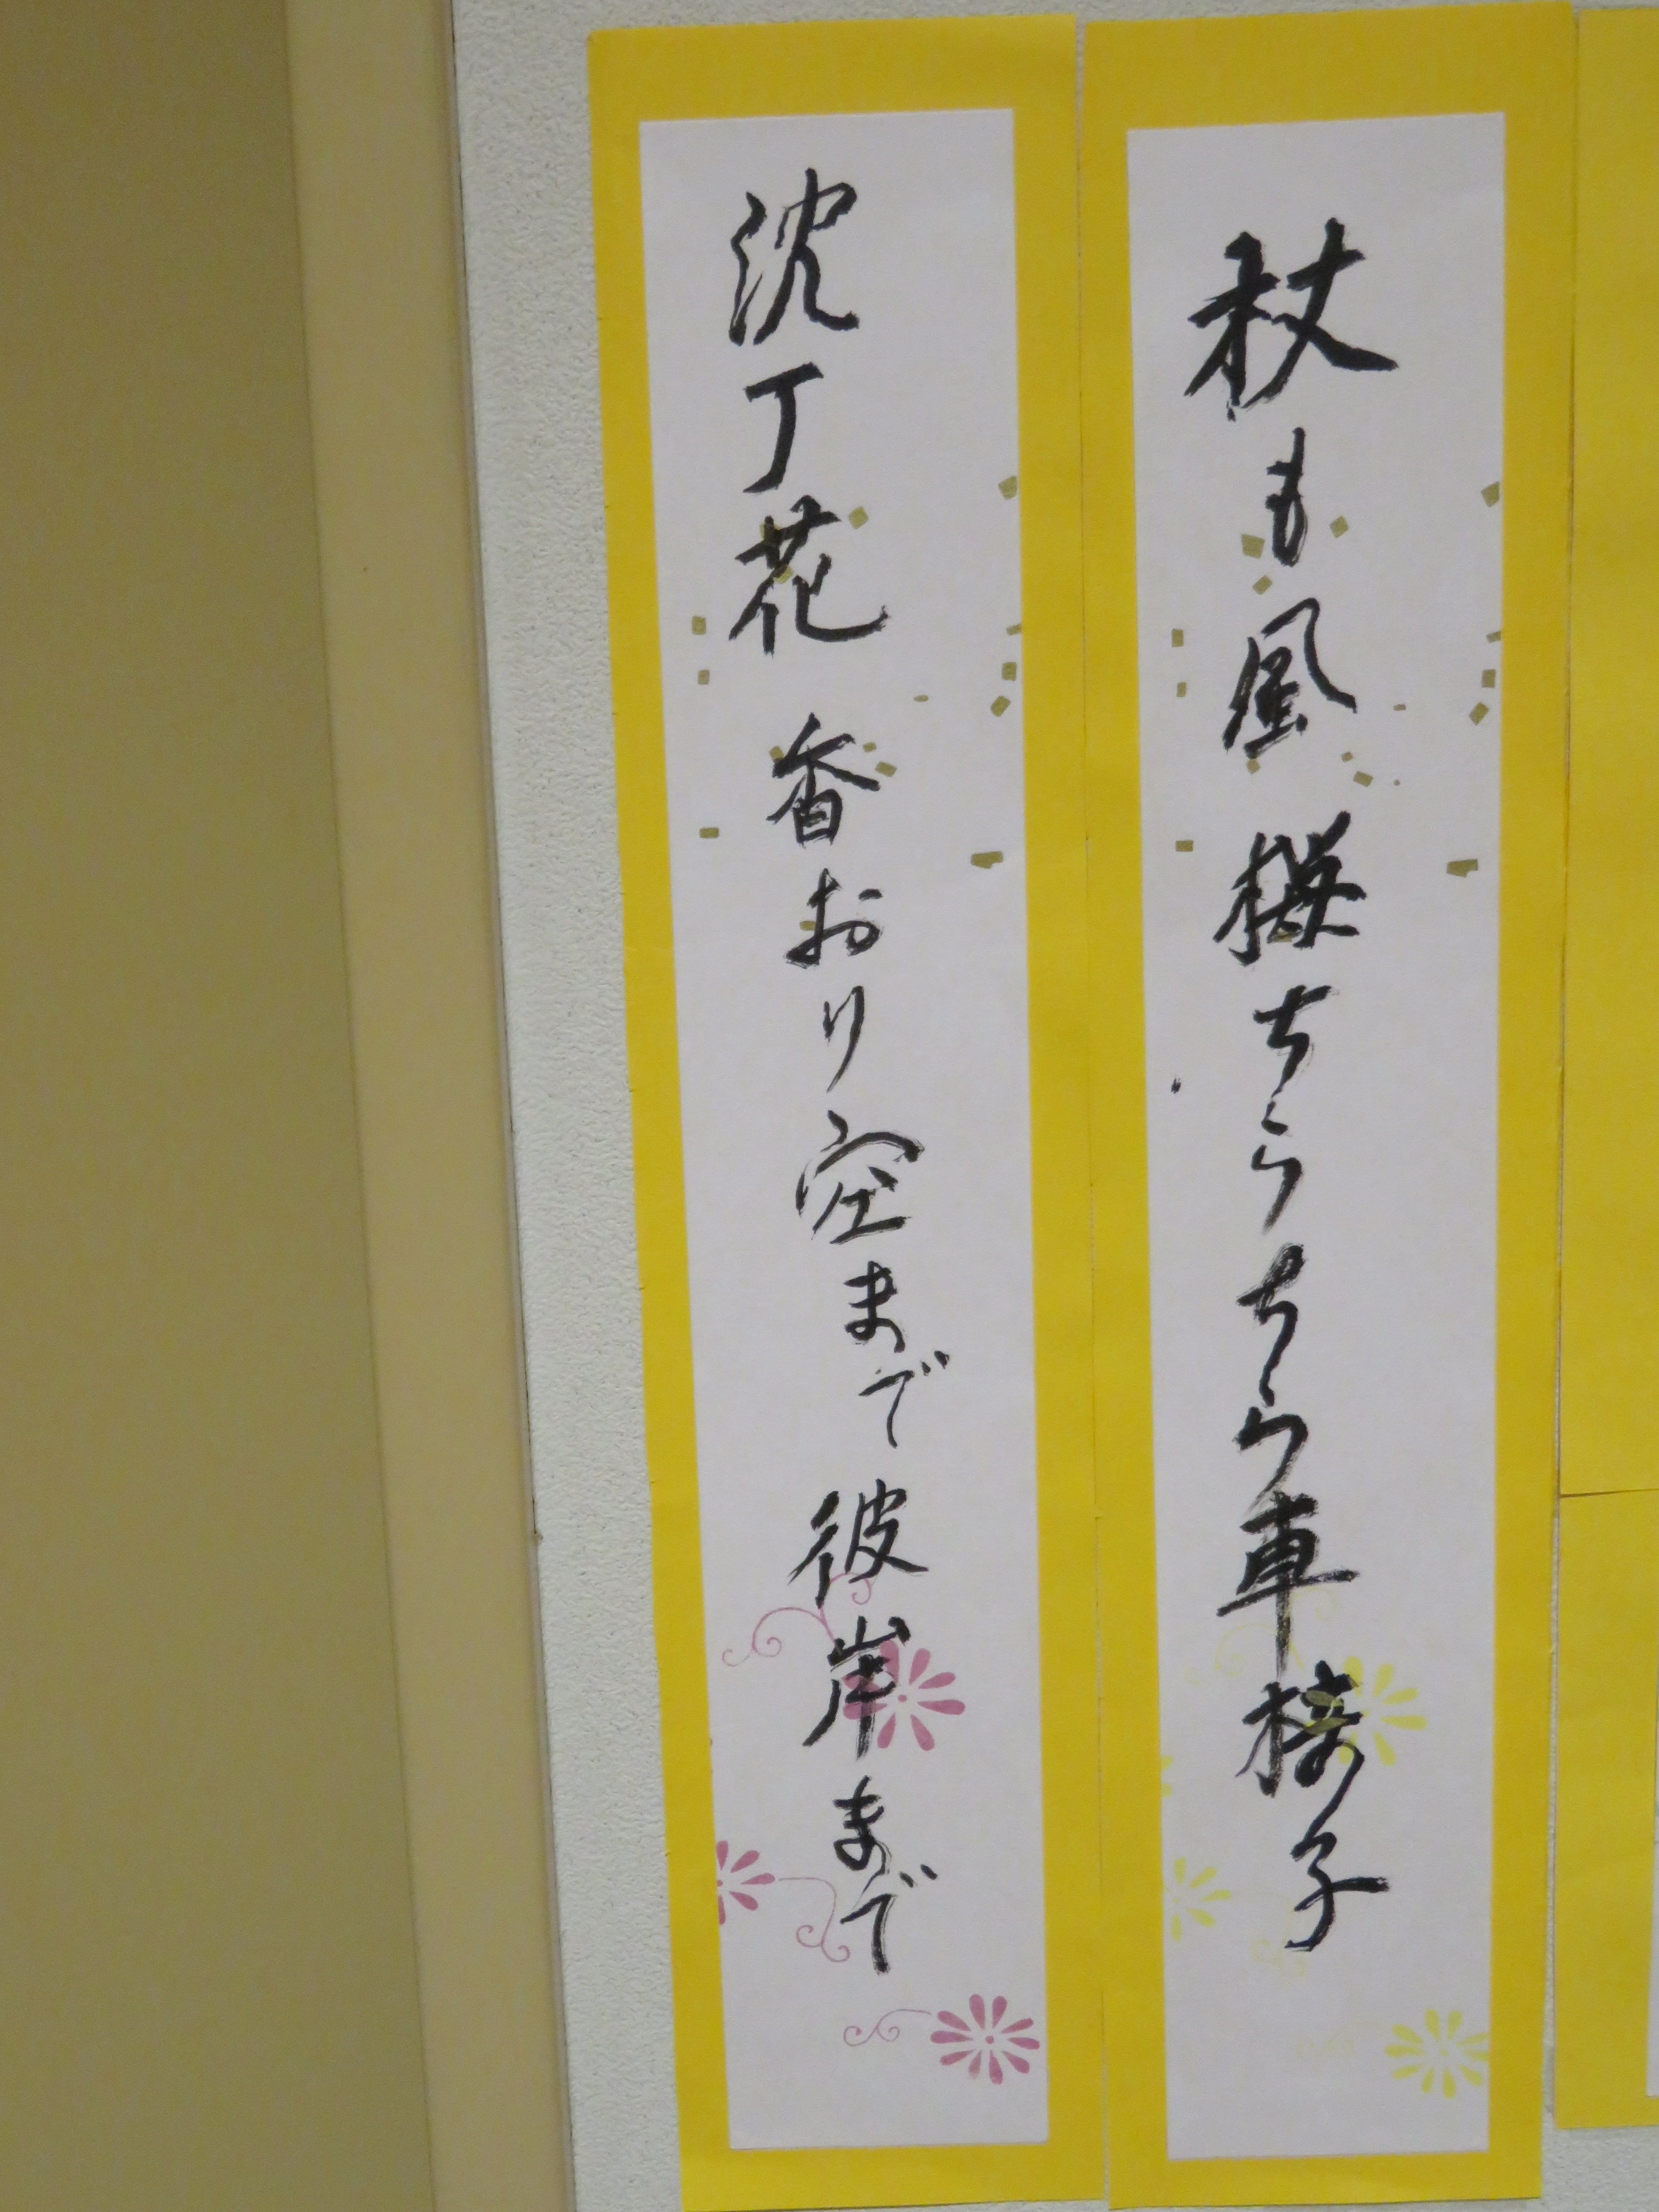 杖も風 桜ちらちら車椅子
沈丁花 香おり空まで彼岸まで